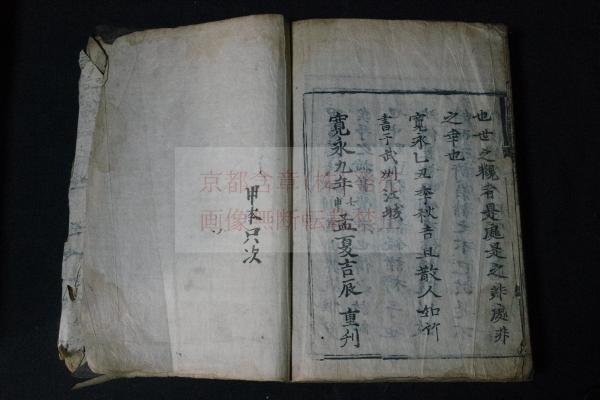 也世之觀者是處是之非處非
之幸也
寛永乙丑季秋吉且散人如竹
書于武州江城
寛永九年壬申孟夏吉辰 重刋
只次
京都含章(株
画像無断転載禁止